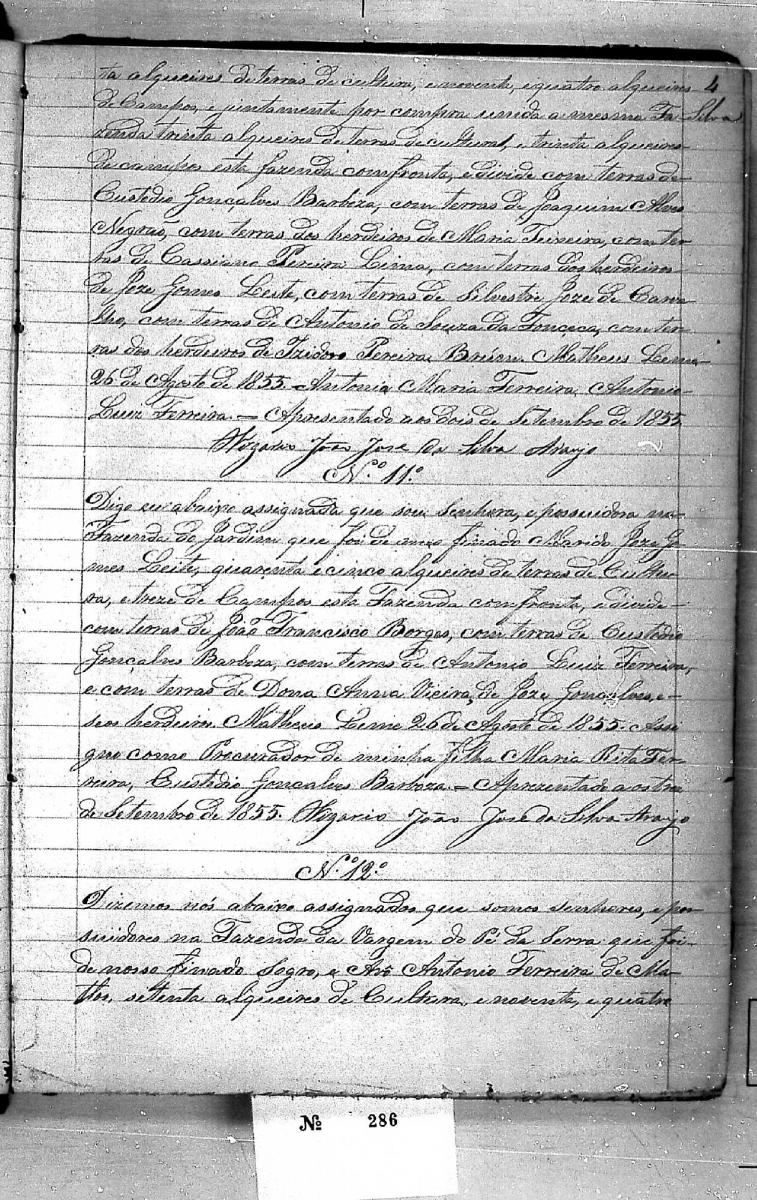 ta alqueires de terras de cultura, e noventa, e quatro alqueires 4
de Campos, e juntamente por compra unida a mesma Fa- Silva
zenda trinta alqueires de terras de cultura, e trinta alqueires
de campos esta fazenda comfronta, e divide com terras de
Custodio Gonçalves Barboza, com terras de Joaquim Alves
Negrao, com terras dos herdeiros de Maria Teixeira, com ter
ras de Cassiano Pereira Lima, com terras dos herdeiros
de Joze Gomes Leite, com terras de Silvestre Joze de Carva
lho, com terras de Antonio de Souza da Fonceca, com ter
ras dos herdeiros de Izidoro Pereira Matheus Leme
26 de Agosto de 1855. Antonia Maria Ferreira, Antonio
Luiz Ferreira. = Apresentado aos dois de Setembro de 1855
Vigario João José da Silva Araujo
N.º 11.º
Digo eu abaixo assignada que sou Senhora, e possuidora na
Fazenda do Jardim que foi de meo finado Marido Joze Go
mes Leite, quarenta e cinco alqueires de terras de Cultu
ra, e treze de Campos esta Fazenda comfronta, e divide
com terras de João Francisco Borges, com terras de Custodio
Gonçalves Barboza, com terras de Antonio Luiz Ferreira,
e com terras de Dona Anna Vieira, de Joze Gonçalves, e
seos herdeiros Matheus Leme 26 de Agosto de 1855. Assi
gno como Procurador de minha filha Maria Rita Fer
reira, Custodio Gonçalves Barboza. = Aprezentado aos tres
de Setembro de 1855. Vigario João José da Silva Araujo
N.º 12.º
Dizemos nós abaixo assignados que somos senhores, e pos
suidores na Fazenda da Vargem do Pé da Serra que foi
de nosso finado Sogro, e Avô Antonio Ferreira de Ma
ttos, settenta alqueires de Cultura, e noventa, e quatro
Nº 286